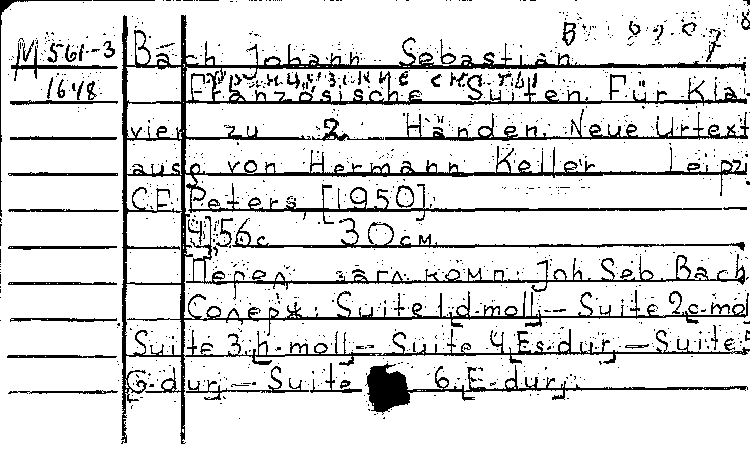 М 561-3 Bach Johann Sebastian
1648 Französische Suiten. Für Kla-
vier zu 2 Händen. Neue Urtext
ausg von Hermann Keller Leipzi
C.F. Peters, [1950].
[4], 56 с. 30 см.
Перед загл. комп.: Joh. Seb. Bach
Содерж.: Suite 1 [d-moll]. – Suite 2 [c-mol
Suite 3 [h-moll]. – Suite 4 [Es-dur]. – Suite 5
[G-dur]. – Suite 6 [E-dur].